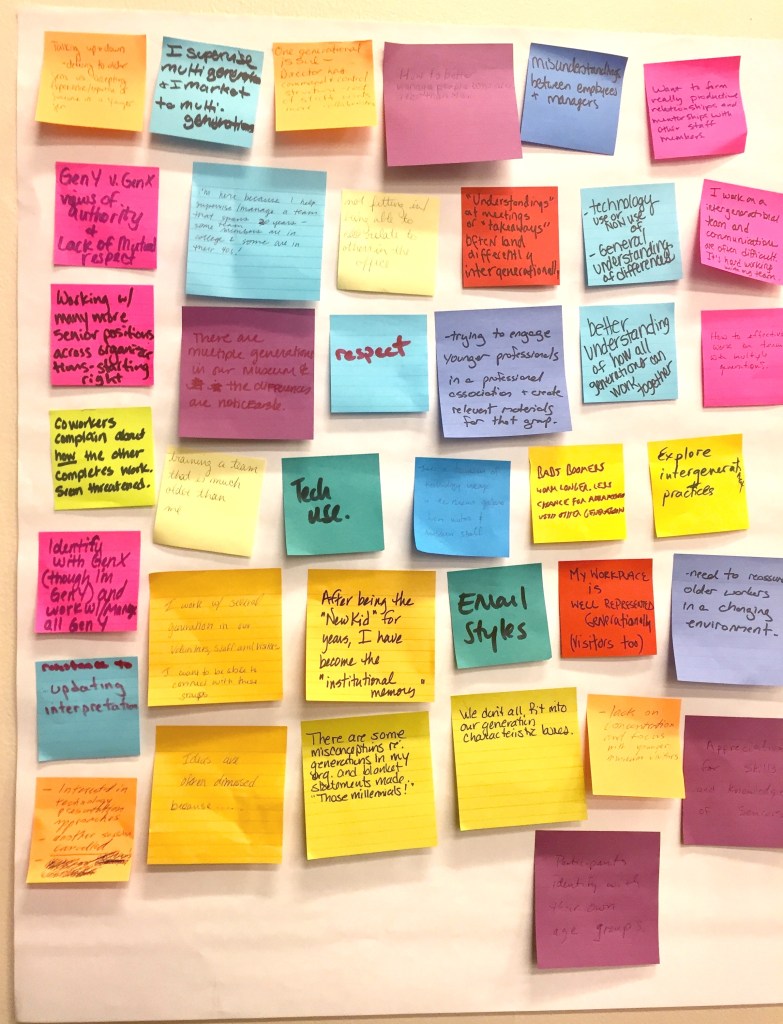 Talking up + down
I supervise
multigeneration
+ I market
to multi-
generations
One generational
issue -
Director and
How to better
misunderstandings
between employees
+ managers
Want to form
really productive
relationships and
mentorships with
other staff
members
Gen Y v. Gen X
views of
authority
+
Lack of Mutual
respect
I'm here because I help
supervise/manage a team
that spans 2 years -
some team members are in
college & some are in
their 70s!
not fitting in/
being able to
the office
"Understandings"
at meetings
or "takeaways"
often land
differently
intergenerationally
- technology
use or non use
of
- General
understanding
of differences
I work on a
intergenerational
team and
communications
are often difficult.
It's hard working
with my team
Working w/
many more
senior positions
across organiza
tions - starting
right
There are
multiple generations
in our museum &
the differences
are noticeable.
respect
- trying to engage
younger professionals
in a professional
association + create
relevant materials
for that group.
better
understanding
of how all
generations can
work together
How to effectively
work on teams
with multiple
generations?
Coworkers
complain about
how the other
completes work.
Seem threatened.
training a team
that is much
older than
me
Tech
use.
BABY BOOMERS
WORK LONGER. LESS
CHANCE FOR ADVANCEMENT
WITH OTHER GENERATION
Explore
intergenerat
practices
Identify
with Gen X
(though I'm
Gen Y) and
work w/ / manage
all Gen Y
I work w/ several
generations in our
volunteers, staff and visitors
I want to be able to
connect with these
groups
After being the
"New Kid" for
years, I have
become the
"institutional
memory"
EMail
Styles
My WORKPLACE
is
WELL REPRESENTED
Generationally
(visitors too)
- need to reassure
older workers
in a changing
environment -
resistance to
updating
interpretation
Ideas are
often dismissed
because ....
There are some
misconceptions re:
generations in my
org. and blanket
statements made,
"Those millennials!"
We don't all fit into
our generation
characteristic boxes.
- lack on
concentration
and focus
with younger
museum visitors
Appreciation
for skills
and knowledge
of seniors
- Interest in
technology
presentation
approaches
- another session
cancelled
Participants
identify with
their own
age group?